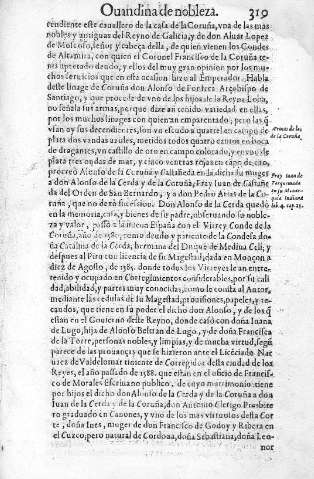 Ouandina de nobleza. 319
cendiente este cauallero de la casa de la Coruña, vna de las mas
nobles y antiguas del Reyno de Galizia, y de don Aluar Lopez
de Moscoso, señor y cabeça della, de quien vienen los Condes
de Altamira, con quien el Coronel Francisco de la Coruña te-
nia apretado deudo, y ellos del muy gran opinion por los mu-
chos seruicios que en esta ocasion hizo al Emperador. Habla
deste linage de Coruña don Alonso de Fonseca Arçobispo de
Santiago, y que procede de vno de los hijos de la Reyna Loba,
no señala sus armas, porque dize an tenido variedad en ellas,
por los muchos linages con quien an emparentado; pero las q̃
vian oy sus decendientes, son vn escudo a quartel en campo de
plata dos vandas azules, metidos todos quatro cantones en boca
de dragantes, vn castillo de oro en campo colorado, y en vno de
plata tres ondas de mar, y cinco veneras rojas en campo de
procreo Alonso de la Coruña y Castañeda en la dicha su muger
a don Alonso de la Cerda y de la Coruña, Fray Iuan de Castañe-
da del Orden de San Bernardo, y a don Pedro Arias de la Co-
ruña, que no dexò sucession. Don Alonso de la Cerda quedò
en la memoria, casa, y bienes de su padre, obseruando su noble-
za y valor, passò a la nueua España con el Virrey Conde de la
Coruña, año de 1580. como deudo y pariente de la Condesa do-
ña Catalina de la Cerda, hermana del Duque de Medina Celi, y
despues al Piru con licencia de su Magestad, dada en Monçon a
diez de Agosto, de 1585. donde todos los Virreyes le an entre-
tenido y ocupado en Corregimientos considerables, por su cali-
dad, abilidad, y partes muy conocidas, como lo consta al Autor,
mediante las cedulas de su Magestad, prouisiones, papeles, y re-
caudos, que tiene en su poder el dicho don Alonso, y de los q̃
estan en el Gouierno deste Reyno, donde casò con doña Iuana
de Lugo, hija de Alonso Beltran de Lugo, y de doña Francisca
de la Torre, personas nobles, y limpias, y de mucha virtud, segũ
parece de las prouanças que se hizieron ante el Licēciado
de Valdelomar tiniente de Corregidor desta ciudad de los
Reyes, el año passado de 1588. que estan en el oficio de Francis-
co de Morales Escriuano publico, de cuyo matrimonio tiene
por hijos el dicho don Alonso de la Cerda y de la Coruña a don
Iuan de la Cerda y de la Coruña, don Antonio Clerigo Presbite
ro graduado en Canones, y vno de los mas virtuosos desta Cor
te, doña Ines, muger de don Francisco de Godoy y Ribera en
el Cuzco, pero natural de Cordoua, doña Sebastiana, doña Leo-
nor
Armas de los
de la Coruña.
Fray Iuan de
Torquemada
en la Monar-
quia Indiana
lib. 4. cap. 25.